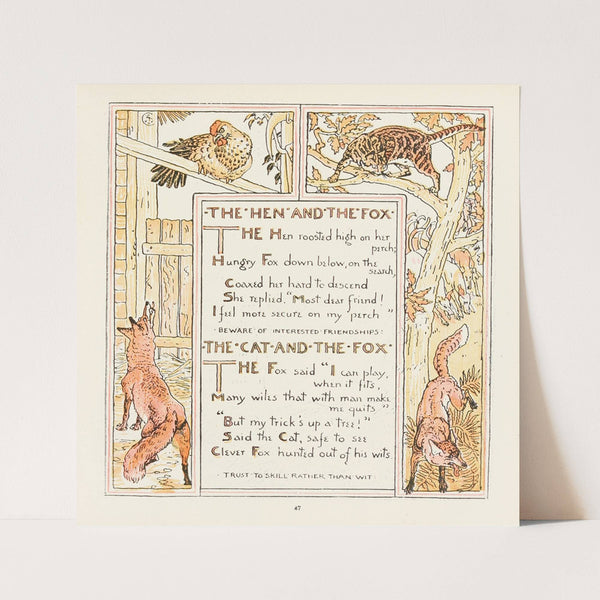 ·THE·HEN·AND·THE·FOX·
THE Hen roosted high on her
perch;
Hungry Fox down below, on the
search,
Coaxed her hard to descend
She replied, "Most dear friend!
I feel more secure on my perch"
·BEWARE·OF·INTERESTED·FRIENDSHIPS·
·THE·CAT·AND·THE·FOX·
THE Fox said "I can play,
when it fits,
Many wiles that with man make
me quits"
"But my trick's up a tree!"
Said the Cat, safe to see
Clever Fox hunted out of his wits
·TRUST·TO·SKILL·RATHER·THAN·WIT·
47